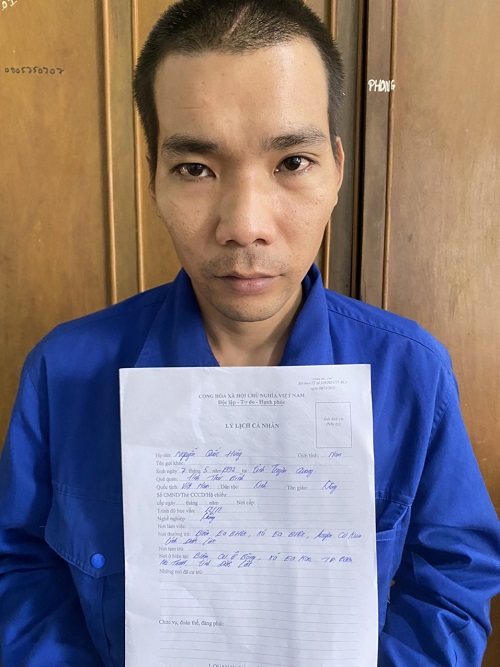 0905250202
PHONG
CỘNG HÒA XÃ HỘI CHỦ NGHĨA VIỆT NAM
Độc lập - Tự do - Hạnh phúc
LÝ LỊCH CÁ NHÂN
Họ tên: Nguyễn Quốc Hùng Giới tính: Nam
Tên gọi khác:
Sinh ngày 7 tháng 5 năm 1992 tại Tỉnh Tuyên Quang
Quê quán: Tỉnh Thái Bình
Quốc tịch: Việt Nam Dân tộc: Kinh Tôn giáo: Không
Số CMND/Thẻ CCCD/Hộ chiếu:
cấp ngày tháng năm Nơi cấp:
Trình độ học vấn: 12/12
Nghề nghiệp: Không
Nơi làm việc:
Nơi thường trú: Ea xã Ea huyện Cư
tỉnh Đắk Lắk
Nơi tạm trú:
Nơi ở hiện tại: xã Ea
Tỉnh Đắk Lắk
Những nơi đã cư trú:
Chức vụ, đoàn thể, đảng phái:
I. QUAN